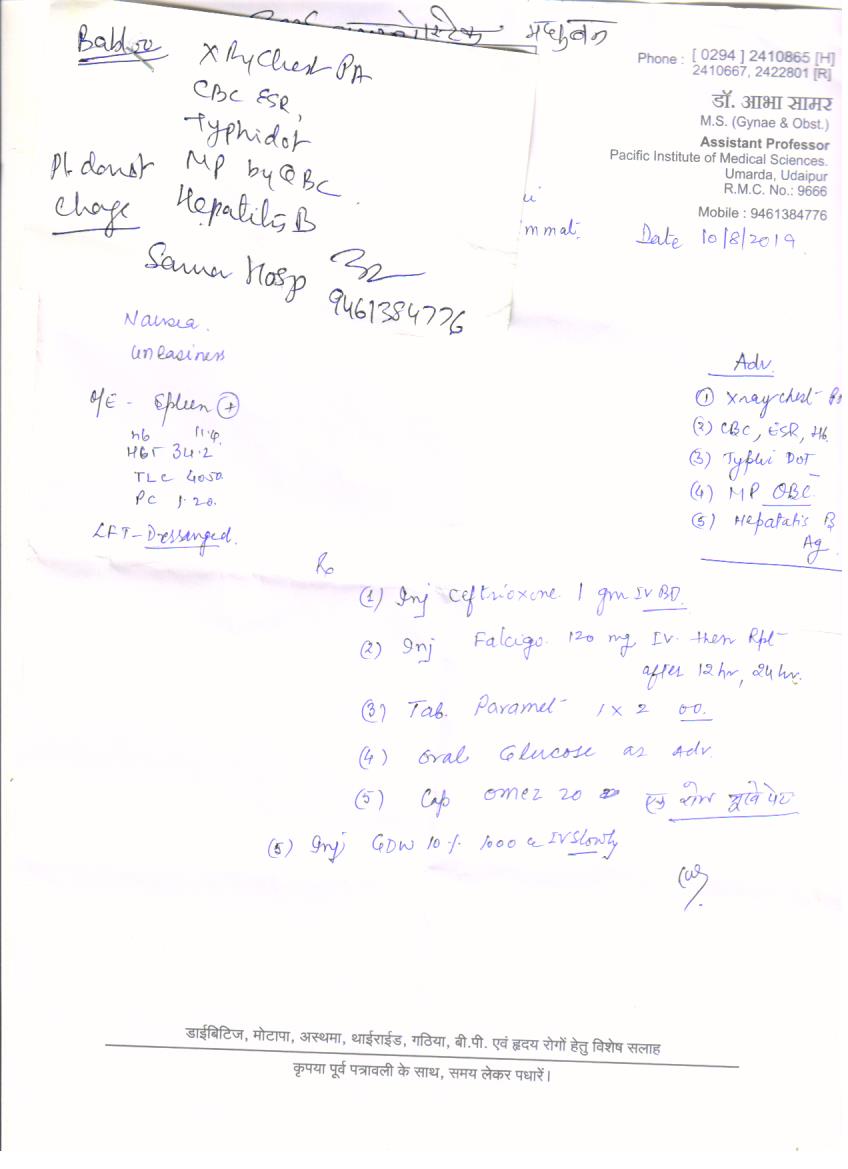 मधुबन
Babloo
X Ray Chest PA
CBC ESR,
Typhidot
Pl. donot MP by QBC
Charge Hepatitis B
Samar Hosp
9461384776
Phone : [ 0294 ] 2410865 [H]
2410667, 2422801 [R]
डॉ. आभा सामर
M.S. (Gynae & Obst.)
Assistant Professor
Pacific Institute of Medical Sciences.
Umarda, Udaipur
R.M.C. No.: 9666
Mobile : 9461384776
Date 10/8/2019
mmat.
Nausea.
uneasiness
O/E - Spleen +
Hb 11.4
HCT 34.2
TLC 4050
PC 1.20
LFT - Dearranged.
Adv.
(1) Xray chest
(2) CBC, ESR, Hb
(3) Typhi DOT
(4) MP QBC
(5) Hepatatis B
Ag
Rx
(1) Inj Ceftrioxone 1 gm IV BD.
(2) Inj Falcigo 120 mg IV. then Rpt
after 12 hr, 24 hr.
(3) Tab. Paramet 1 x 2
(4) Oral Glucose as Adv.
(5) Cap Omez 20 एक रोज भूखे पेट
(5) Inj GDW 10 % 1000 cc IV Slowly
डाईबिटिज, मोटापा, अस्थमा, थाईराईड, गठिया, बी.पी. एवं हृदय रोगों हेतु विशेष सलाह
कृपया पूर्व पत्रावली के साथ, समय लेकर पधारें।